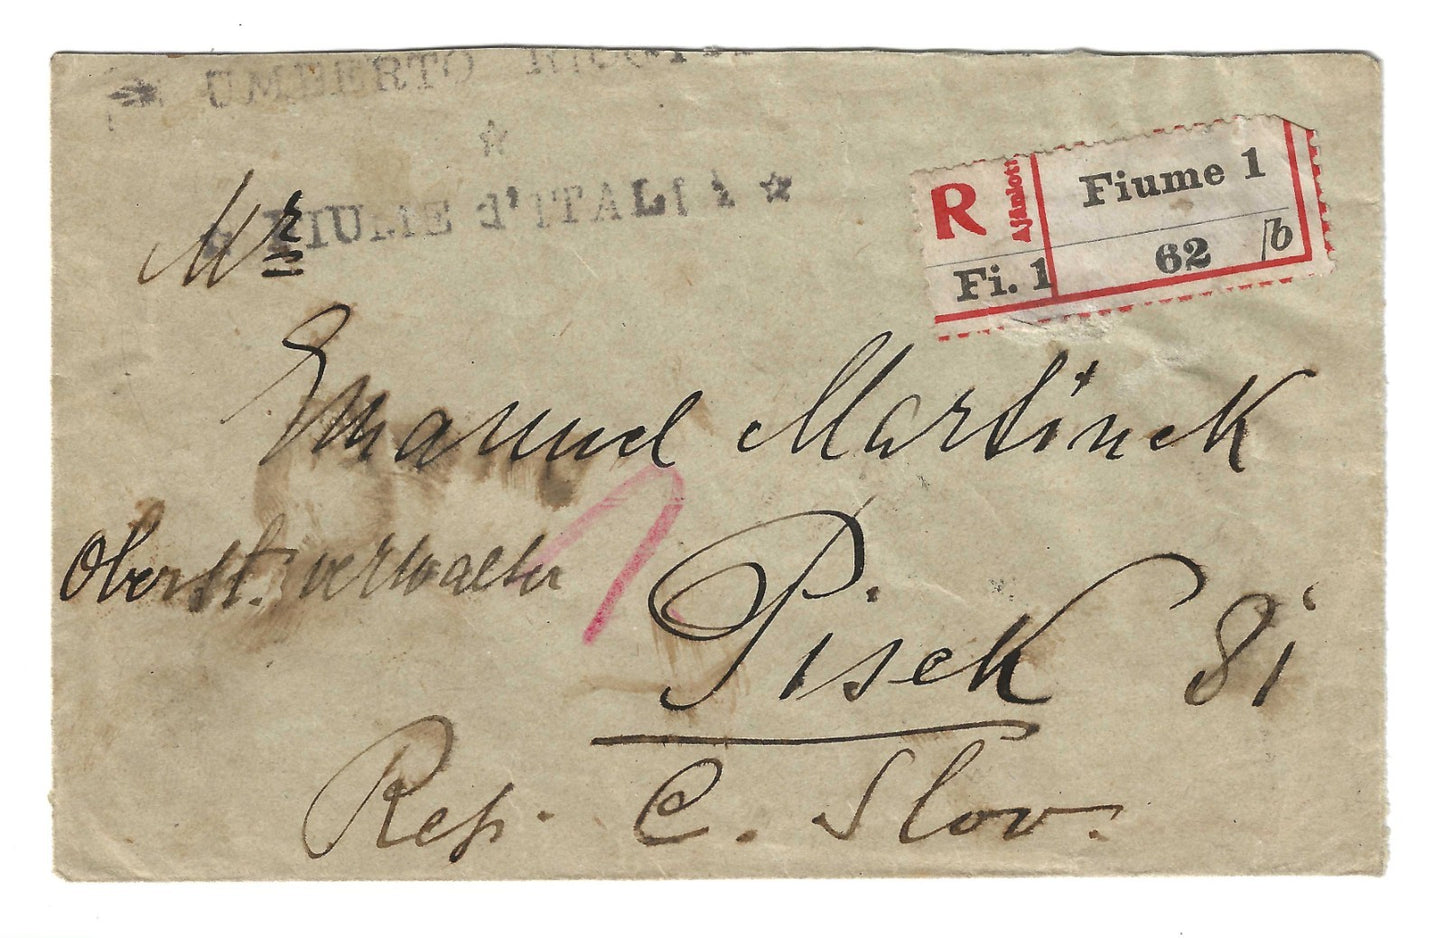 UMBERTO
FIUME d'ITALIA
R
Ajánlott
Fiume 1
Fi. 1
62
/b
Mr
Emanuel Martinek
Oberst. verwalter
Pisek 81
Rep. C. Slov.